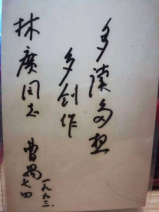 多读多想
多创作
林广同志
曹禺
一九八三、
七、四